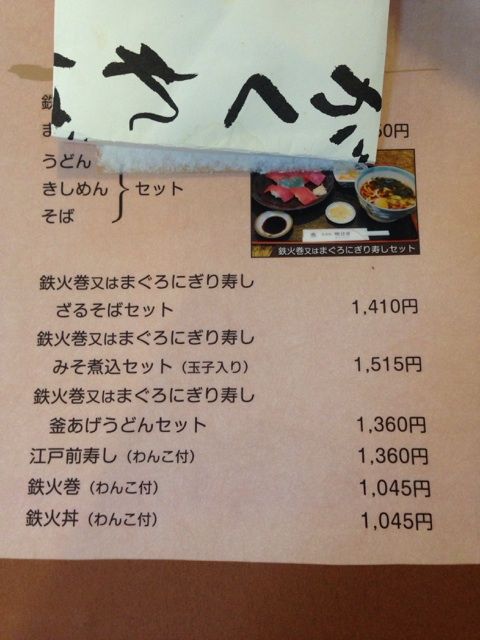 がくれ
うどん
きしめん
そば
セット
鉄火巻又はまぐろにぎり寿しセット
鉄火巻又はまぐろにぎり寿し
ざるそばセット 1,410円
鉄火巻又はまぐろにぎり寿し
みそ煮込セット（玉子入り） 1,515円
鉄火巻又はまぐろにぎり寿し
釜あげうどんセット 1,360円
江戸前寿し（わんこ付） 1,360円
鉄火巻（わんこ付） 1,045円
鉄火丼（わんこ付） 1,045円